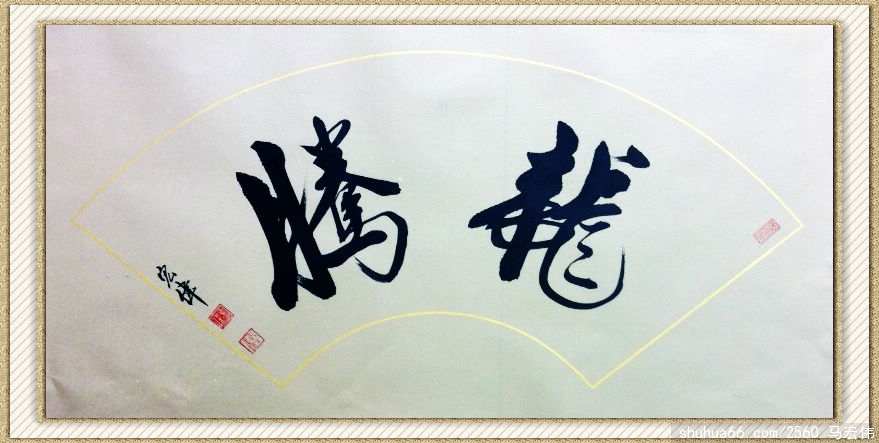 龍騰
宏偉
shuhua66.com/2560 马宏伟